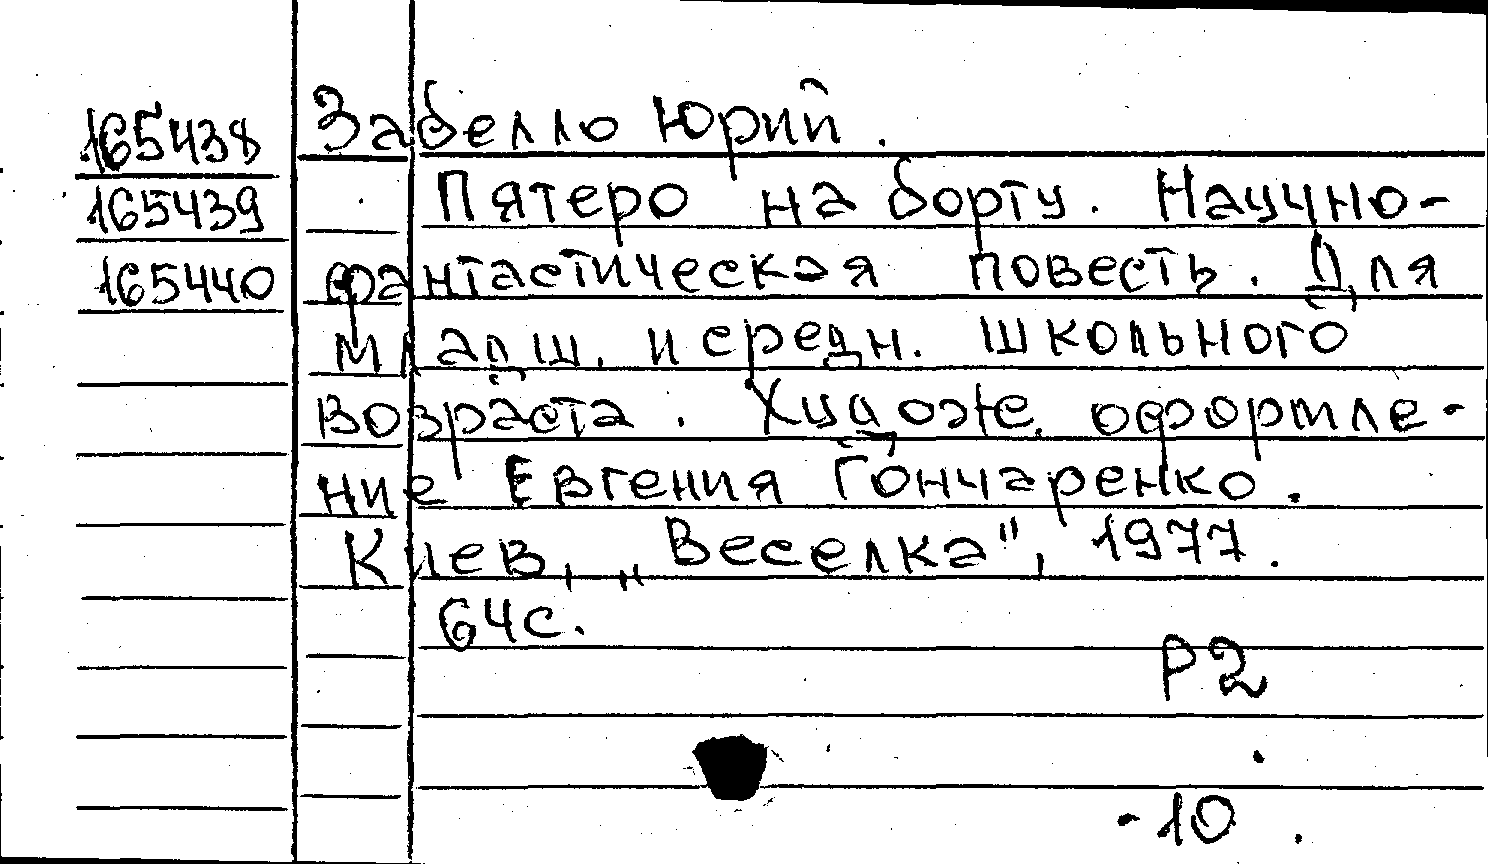 165438 Забелло Юрий.
165439 Пятеро на борту. Научно-
165440 фантастическая повесть. Для
младш. и средн. школьного
возраста. Худож. оформле-
ние Евгения Гончаренко.
Киев, „Веселка", 1977.
64с.
Р2
-10.